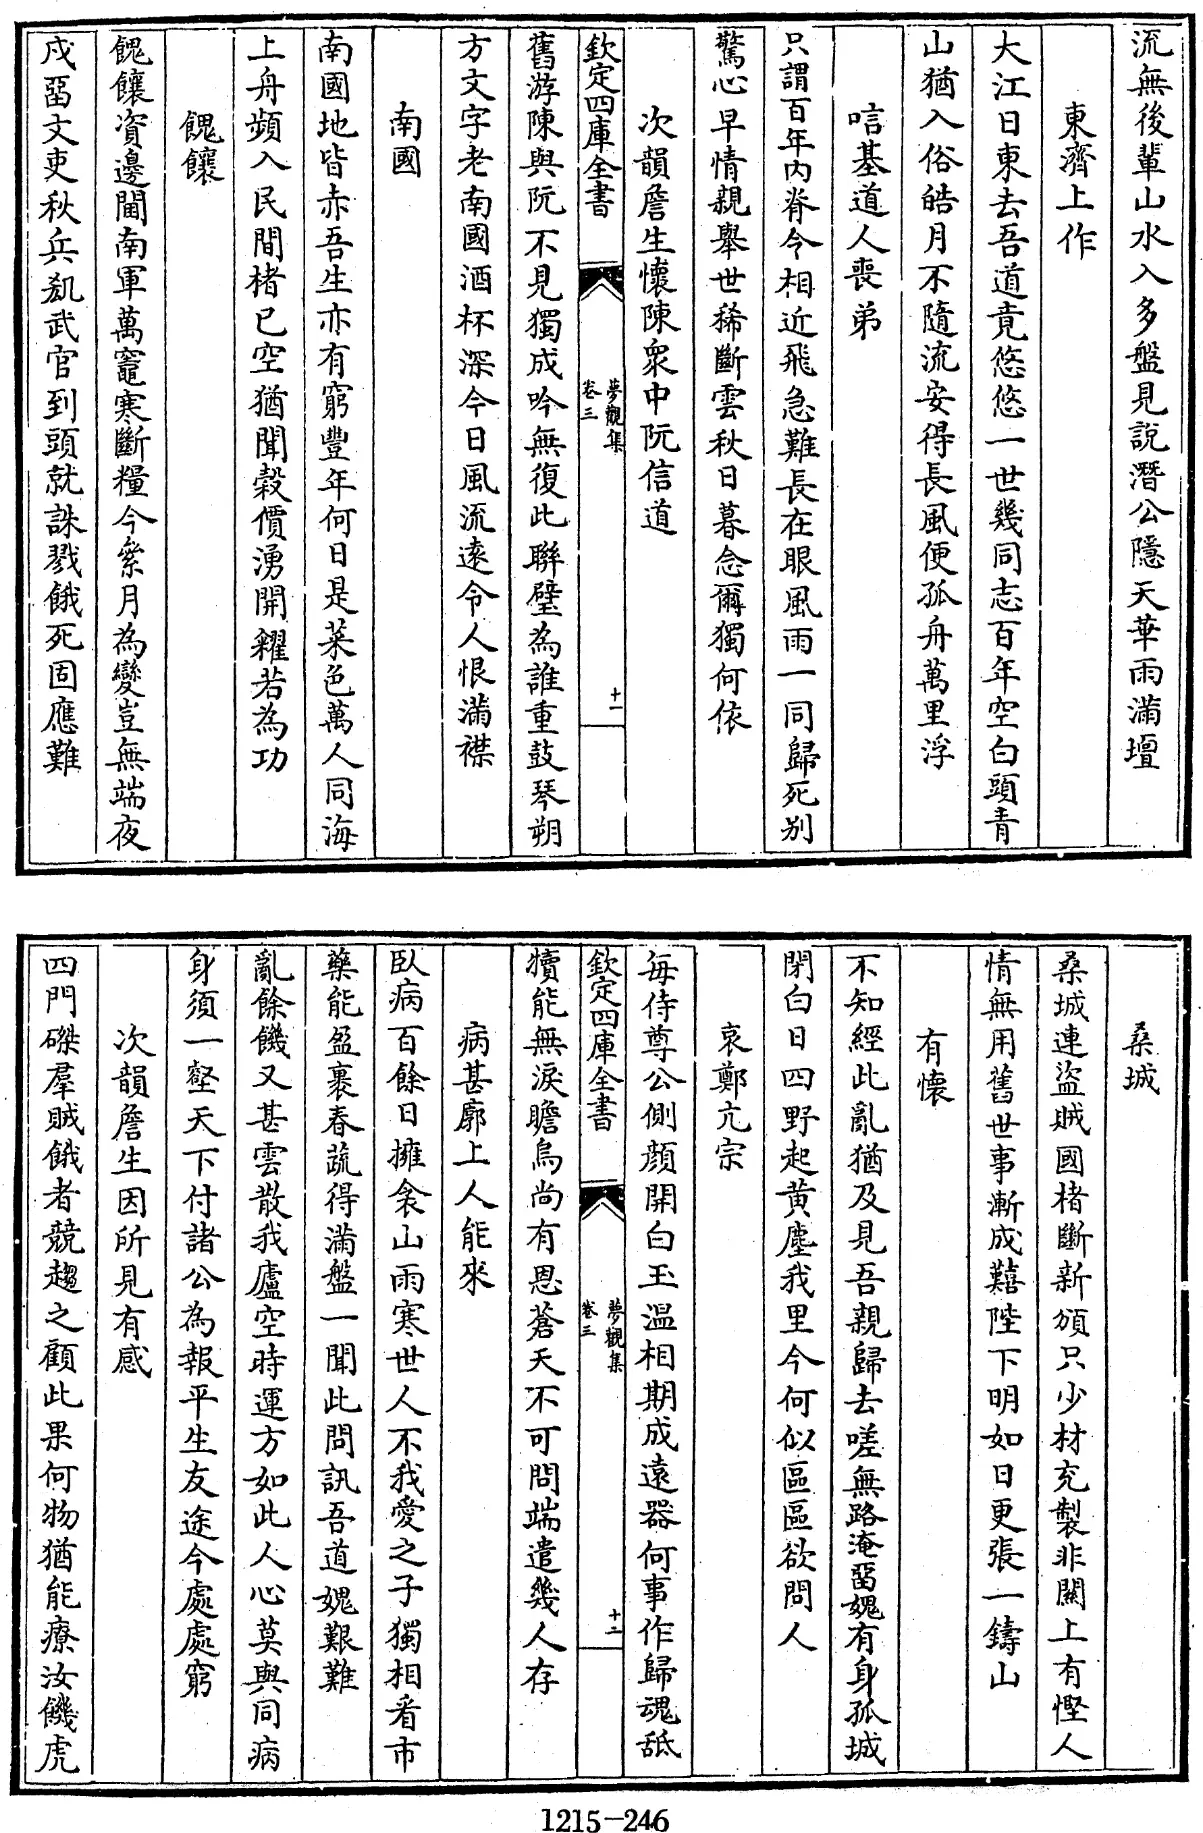 流無後輩山水入多盤見說潛公隱天華雨滿壇
東濟上作
大江日東去吾道竟悠悠一世幾同志百年空白頭青
山猶入俗皓月不隨流安得長風便孤舟萬里浮
唁基道人喪弟
只謂百年内脊令相近飛急難長在眼風雨一同歸死别
驚心早情親舉世稀斷雲秋日暮念爾獨何依
次韻詹生懷陳衆中阮信道
欽定四庫全書
夢觀集
卷三
十一
舊游陳與阮不見獨成吟無復此聯璧為誰重鼓琴朔
方文字老南國酒杯深今日風流遠令人恨滿襟
南國
南國地皆赤吾生亦有窮豐年何日是菜色萬人同海
上舟頻入民間楮已空猶聞穀價湧開糴若為功
餽饟
餽饟資邊閫南軍萬竈寒斷糧今絫月為變豈無端夜
戍畱文吏秋兵剎武官到頭就誅戮餓死固應難
桑城
桑城連盜賊國楮斷新頒只少材充製非關上有慳人
情無用舊世事漸成囏陛下明如日更張一鑄山
有懷
不知經此亂猶及見吾親歸去嗟無路淹畱媿有身孤城
閉白日四野起黄塵我里今何似區區欲問人
哀鄭亢宗
每侍尊公側顔開白玉温相期成遠器何事作歸魂舐
犢能無淚瞻烏尚有恩蒼天不可問端遣幾人存
欽定四庫全書
夢觀集
卷三
十二
病甚廓上人能來
臥病百餘日擁衾山雨寒世人不我愛之子獨相看市
藥能盈裹春蔬得滿盤一聞此問訊吾道媿艱難
亂餘饑又甚雲散我廬空時運方如此人心莫與同病
身須一壑天下付諸公為報平生友途今處處窮
次韻詹生因所見有感
四門磔羣賊餓者競趨之顧此果何物猶能療汝饑虎
1215-246